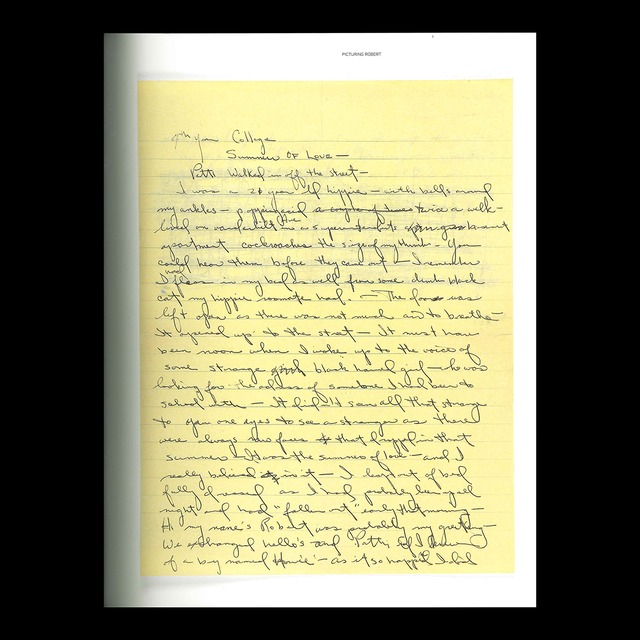 PICTURING ROBERT
4th year College
Summer Of Love —
Patti Walked in off the street —
I was a 20 year old hippie — with bells around
my ankles — twice a week —
lived on Vanderbilt in a
apartment cockroaches the size of my thumb — You
could hear them before they came out — I remember
I had fleas in my bed as well from some dumb black
cat my hippie roommate had. — The door was
left open as there was not much air to breathe —
It opened up to the street — It must have
been noon when I woke up to the voice of
some strange black haired girl — she was
looking for the address of someone I had been to
school with — It didn't seem all that strange
to open one's eyes to see a stranger as there
were always new faces that happened in that
summer — It was the summer of love — and I
really believed in it — I leapt out of bed
fully dressed as I had probably been up all
night and had "fallen out" early that morning —
Hi my name's Robert was probably my greeting —
We exchanged hello's and Patti asked if I knew
of a boy named Howie — as it so happened I had